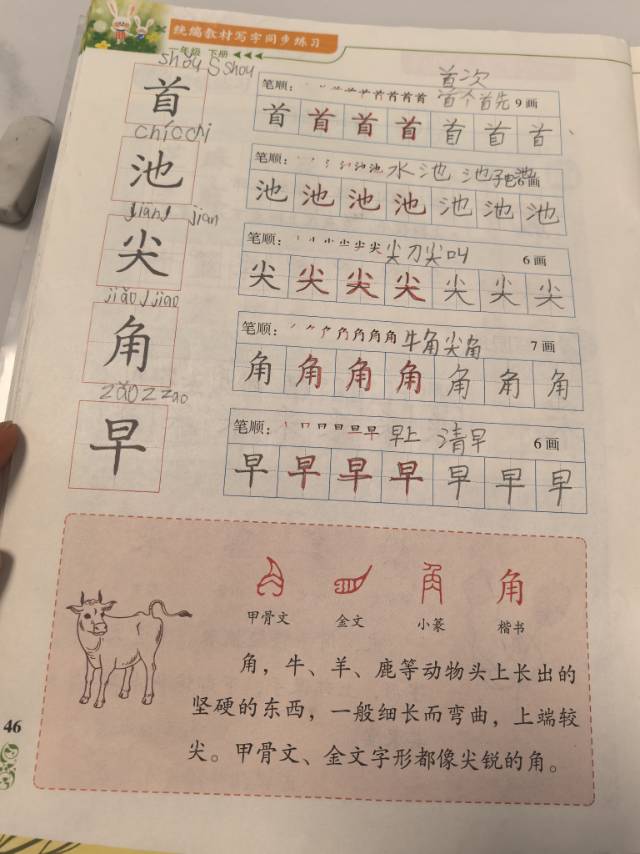 统编教材写字同步练习
一年级 下册
shǒu S shou
首次
首
笔顺: 首个首先 9画
首 首 首 首 首 首 首
chí c chi
池
笔顺: 水池 池子电池 6画
池 池 池 池 池 池 池
jiān j jian
尖
笔顺: 尖刀尖叫 6画
尖 尖 尖 尖 尖 尖 尖
jiǎo j jiao
角
笔顺: 牛角尖角 7画
角 角 角 角 角 角 角
zǎo z zao
早
笔顺: 早上 清早 6画
早 早 早 早 早 早 早
角
甲骨文 金文 小篆 楷书
角，牛、羊、鹿等动物头上长出的
坚硬的东西，一般细长而弯曲，上端较
尖。甲骨文、金文字形都像尖锐的角。
46